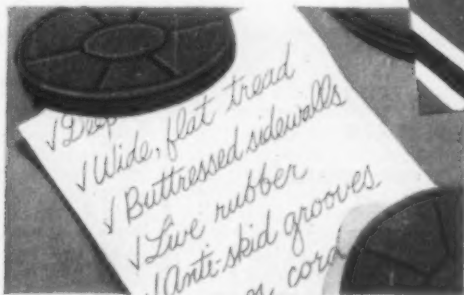 √ Deep
√ Wide, flat tread
√ Buttressed sidewalls
√ Live rubber
√ Anti-skid grooves
cord